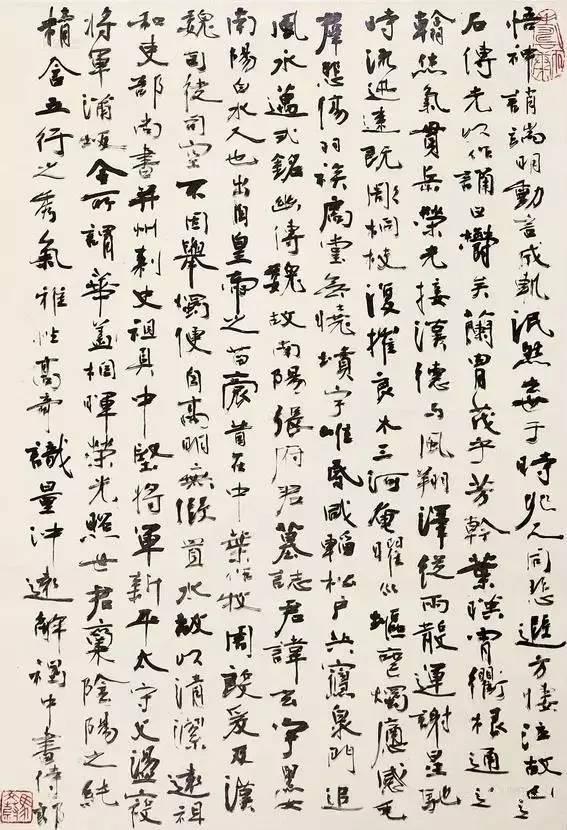 悟神端明動言成軌泯然于時兆人同悲遐方悽泣故刊之
石傳光以作誦曰鬱矣蘭胄茂乎芳幹葉映霄衢根通
翰然氣貫岳榮光接漢德与風翔澤從雨散運謝星馳
時流迅速既彫桐枝復摧良木三河奄曜坵墟燭痛感毛
羣悲傷羽族扃堂無曉墳宇唯昏咸韜松戶共寢泉門追
風永邁式銘幽傳魏故南陽張府君墓誌君諱玄字黑女
南陽白水人也出自皇帝之苗裔昔在中葉作牧周殷爰及漢
魏司徒司空不因舉燭便自高明無假置水故以清潔遠祖
和吏部尚書并州刺史祖具中堅將軍新平太守父盪寇
將軍蒲坂令所謂華蓋相暉榮光照世君稟陰陽之純
精含五行之秀氣雅性高奇識量沖遠解褐中書侍郎